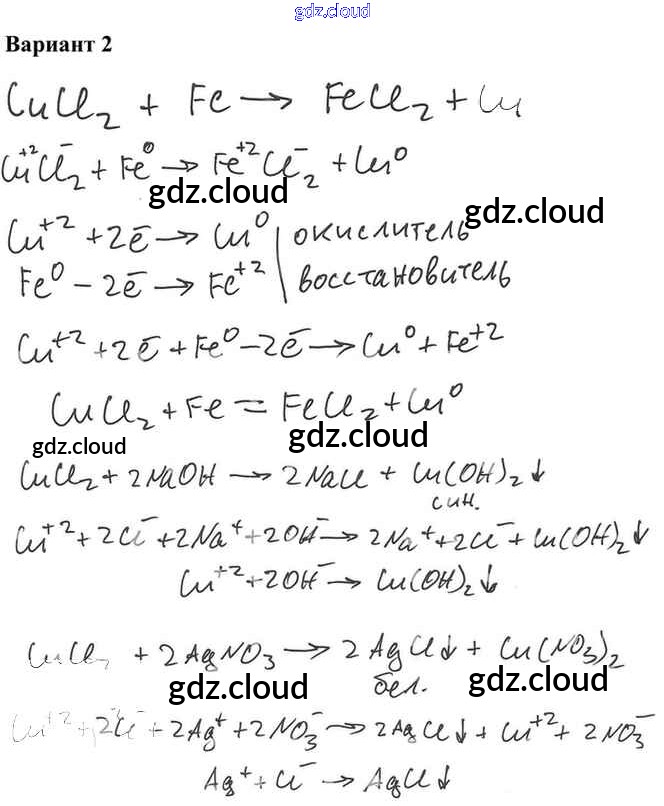 gdz.cloud
Вариант 2
CuCl₂ + Fe → FeCl₂ + Cu
Cu⁺²Cl⁻₂ + Fe⁰ → Fe⁺²Cl⁻₂ + Cu⁰
gdz.cloud
gdz.cloud
Cu⁺² + 2ē → Cu⁰ | окислитель
Fe⁰ − 2ē → Fe⁺² | восстановитель
Cu⁺² + 2ē + Fe⁰ − 2ē → Cu⁰ + Fe⁺²
CuCl₂ + Fe = FeCl₂ + Cu⁰
gdz.cloud
gdz.cloud
CuCl₂ + 2NaOH → 2NaCl + Cu(OH)₂↓
син.
Cu⁺² + 2Cl⁻ + 2Na⁺ + 2OH⁻ → 2Na⁺ + 2Cl⁻ + Cu(OH)₂↓
Cu⁺² + 2OH⁻ → Cu(OH)₂↓
CuCl₂ + 2AgNO₃ → 2AgCl↓ + Cu(NO₃)₂
бел.
gdz.cloud
gdz.cloud
Cu⁺² + 2Cl⁻ + 2Ag⁺ + 2NO₃⁻ → 2AgCl↓ + Cu⁺² + 2NO₃⁻
Ag⁺ + Cl⁻ → AgCl↓